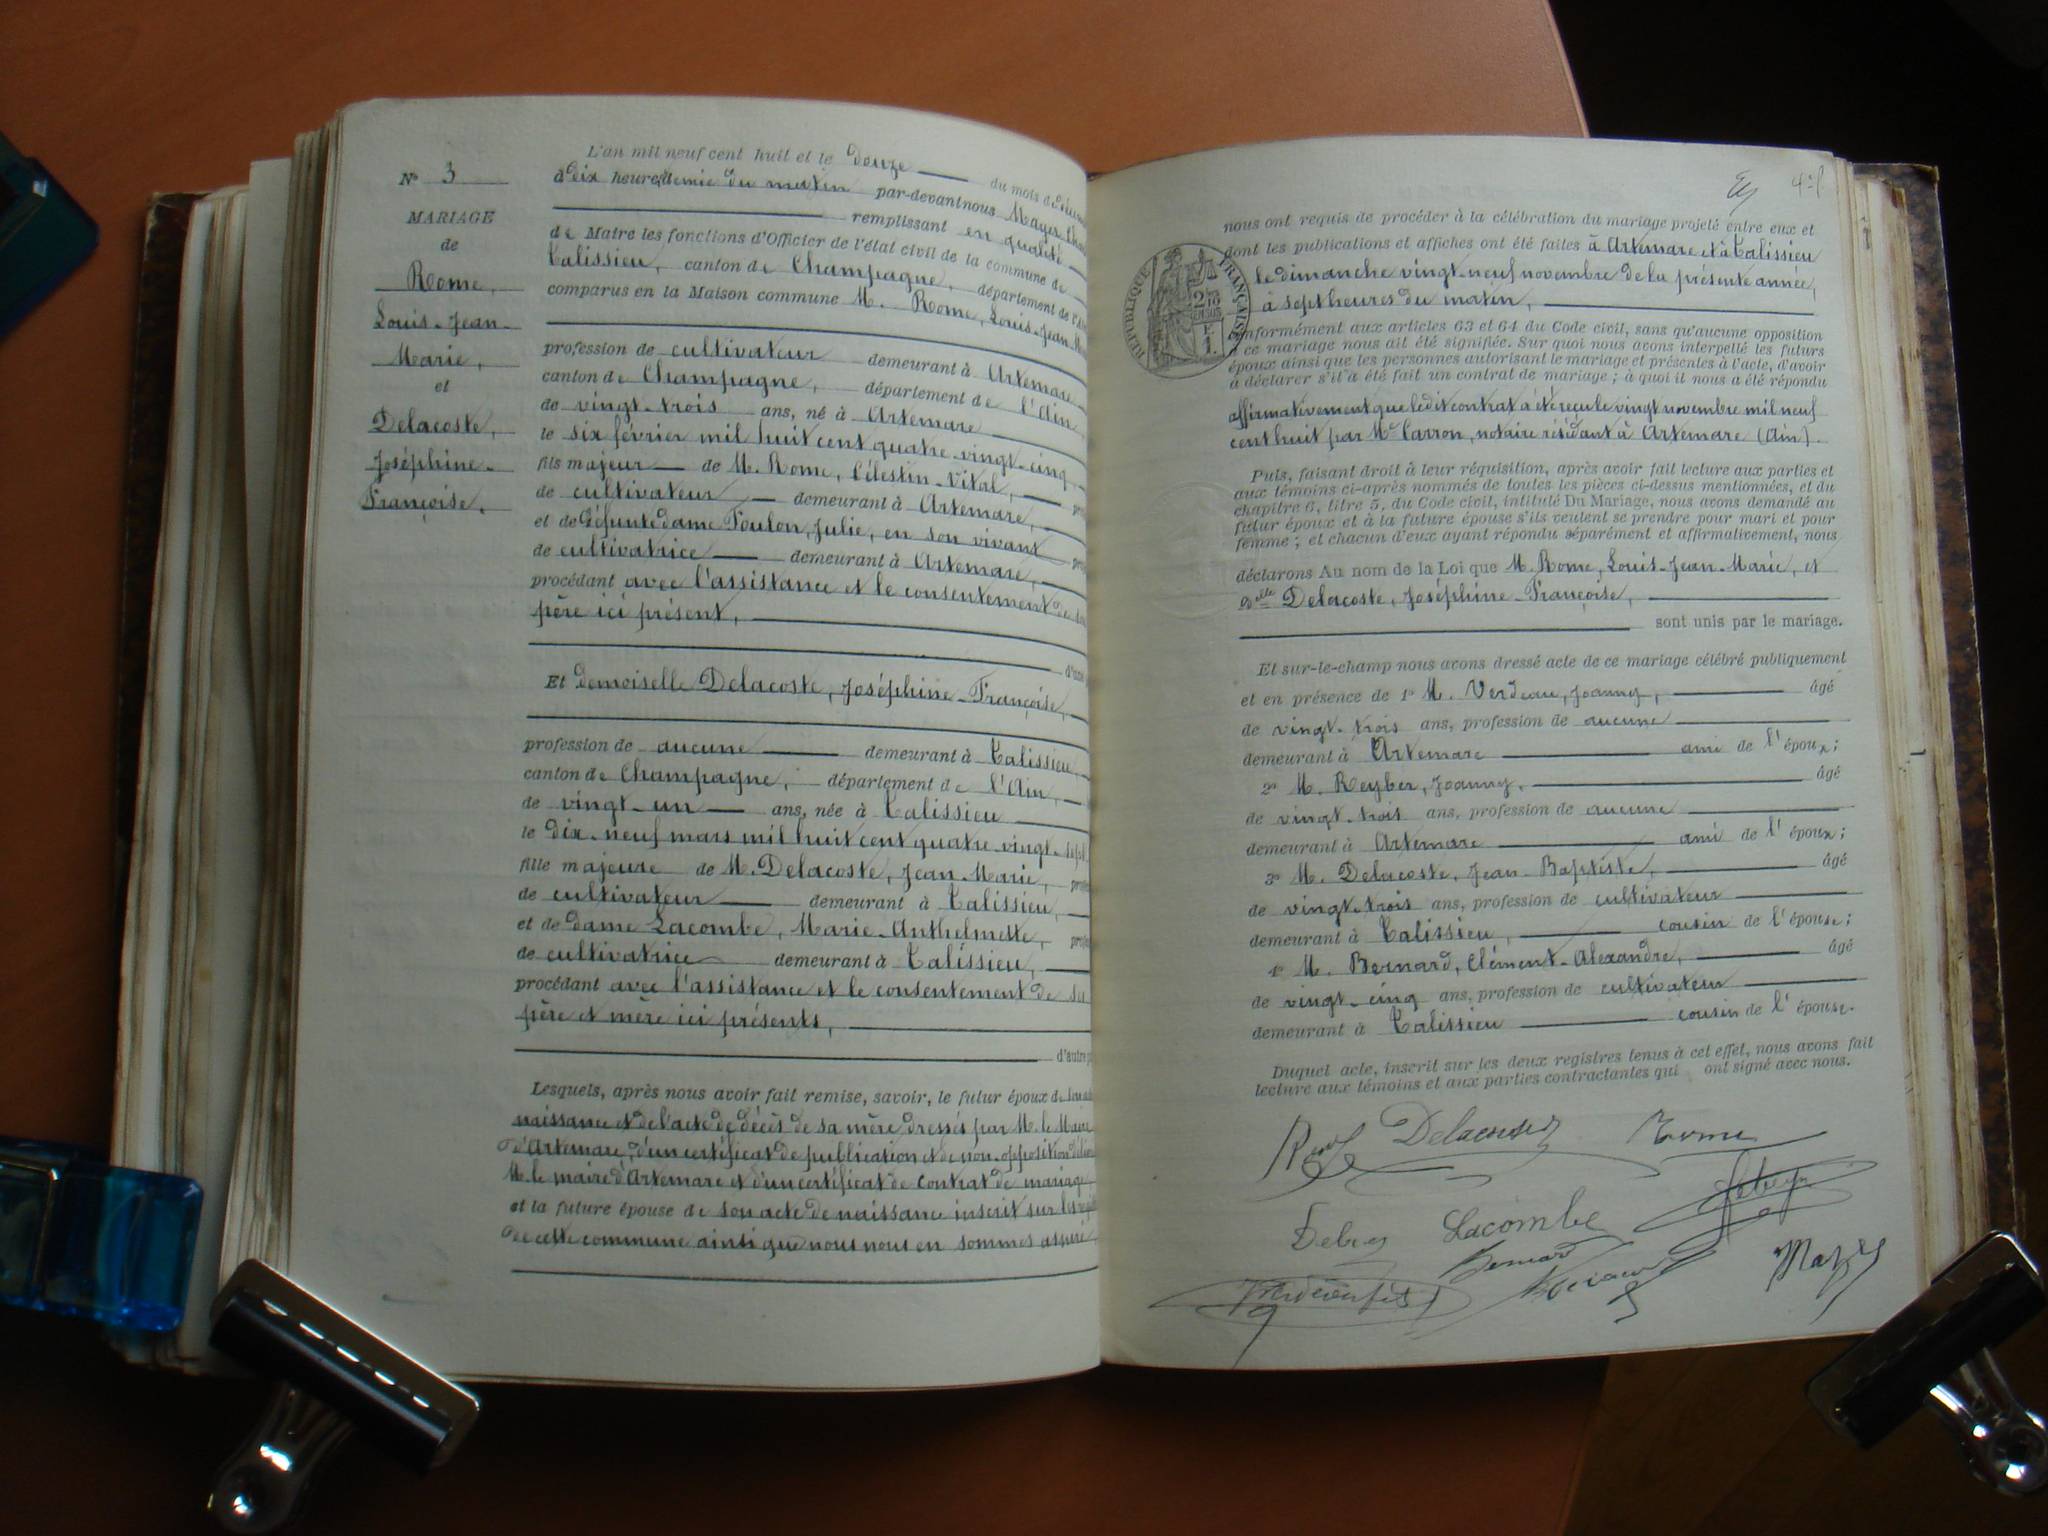 N° 3
MARIAGE
de
Rome,
Louis-Jean-
Marie,
et
Delacoste,
Joséphine-
Françoise.
L'an mil neuf cent huit et le douze du mois de
à dix heures demie du matin par-devant nous Mayer
remplissant en qualité
de Maire les fonctions d'Officier de l'état civil de la commune de
Talissieu, canton de Champagne, département de l'Ain
comparus en la Maison commune M. Rome, Louis-Jean-M
profession de cultivateur demeurant à Artemare
canton de Champagne, département de l'Ain,
de vingt-trois ans, né à Artemare
le six février mil huit cent quatre-vingt-cinq,
fils majeur de M. Rome, Célestin-Vital,
de cultivateur demeurant à Artemare,
et de défunte dame Foulon, Julie, en son vivant
de cultivatrice demeurant à Artemare,
procédant avec l'assistance et le consentement de
père ici présent,
d'une
Et demoiselle Delacoste, Joséphine-Françoise,
profession de aucune demeurant à Talissieu,
canton de Champagne, département de l'Ain,
de vingt-un ans, née à Talissieu
le dix-neuf mars mil huit cent quatre-vingt-sept
fille majeure de M. Delacoste, Jean-Marie,
de cultivateur demeurant à Talissieu,
et de dame Lacombe, Marie-Anthelmette,
de cultivatrice demeurant à Talissieu,
procédant avec l'assistance et le consentement de
père et mère ici présents,
d'autre
Lesquels, après nous avoir fait remise, savoir, le futur époux de
naissance et de l'acte de décès de sa mère dressés par M. le Maire
d'Artemare, d'un certificat de publication et de non-opposition
M. le maire d'Artemare et d'un certificat de contrat de mariage
et la future épouse de son acte de naissance inscrit sur les
de cette commune ainsi que nous nous en sommes assuré
nous ont requis de procéder à la célébration du mariage projeté entre eux et
dont les publications et affiches ont été faites à Artemare et à Talissieu
le dimanche vingt-neuf novembre de la présente année,
à sept heures du matin,
RÉPUBLIQUE FRANÇAISE
conformément aux articles 63 et 64 du Code civil, sans qu'aucune opposition
à ce mariage nous ait été signifiée. Sur quoi nous avons interpellé les futurs
époux ainsi que les personnes autorisant le mariage et présentes à l'acte, d'avoir
à déclarer s'il a été fait un contrat de mariage; à quoi il nous a été répondu
affirmativement que ledit contrat a été reçu le vingt novembre mil neuf
cent huit par Me Carron, notaire résidant à Artemare (Ain).
Puis, faisant droit à leur réquisition, après avoir fait lecture aux parties et
aux témoins ci-après nommés de toutes les pièces ci-dessus mentionnées, et du
chapitre 6, titre 5, du Code civil, intitulé Du Mariage, nous avons demandé au
futur époux et à la future épouse s'ils veulent se prendre pour mari et pour
femme; et chacun d'eux ayant répondu séparément et affirmativement, nous
déclarons Au nom de la Loi que M. Rome, Louis-Jean-Marie, et
Delle Delacoste, Joséphine-Françoise,
sont unis par le mariage.
Et sur-le-champ nous avons dressé acte de ce mariage célébré publiquement
et en présence de 1° M. Verdeau, Joanny, âgé
de vingt-trois ans, profession de aucune
demeurant à Artemare ami de l'époux;
2° M. Reyber, Joanny, âgé
de vingt-trois ans, profession de aucune
demeurant à Artemare ami de l'époux;
3° M. Delacoste, Jean-Baptiste, âgé
de vingt-trois ans, profession de cultivateur
demeurant à Talissieu, cousin de l'épouse;
4° M. Bernard, Clément-Alexandre, âgé
de vingt-cinq ans, profession de cultivateur
demeurant à Talissieu cousin de l'épouse.
Duquel acte, inscrit sur les deux registres tenus à cet effet, nous avons fait
lecture aux témoins et aux parties contractantes qui ont signé avec nous.
Rome
Lacombe
Bernard